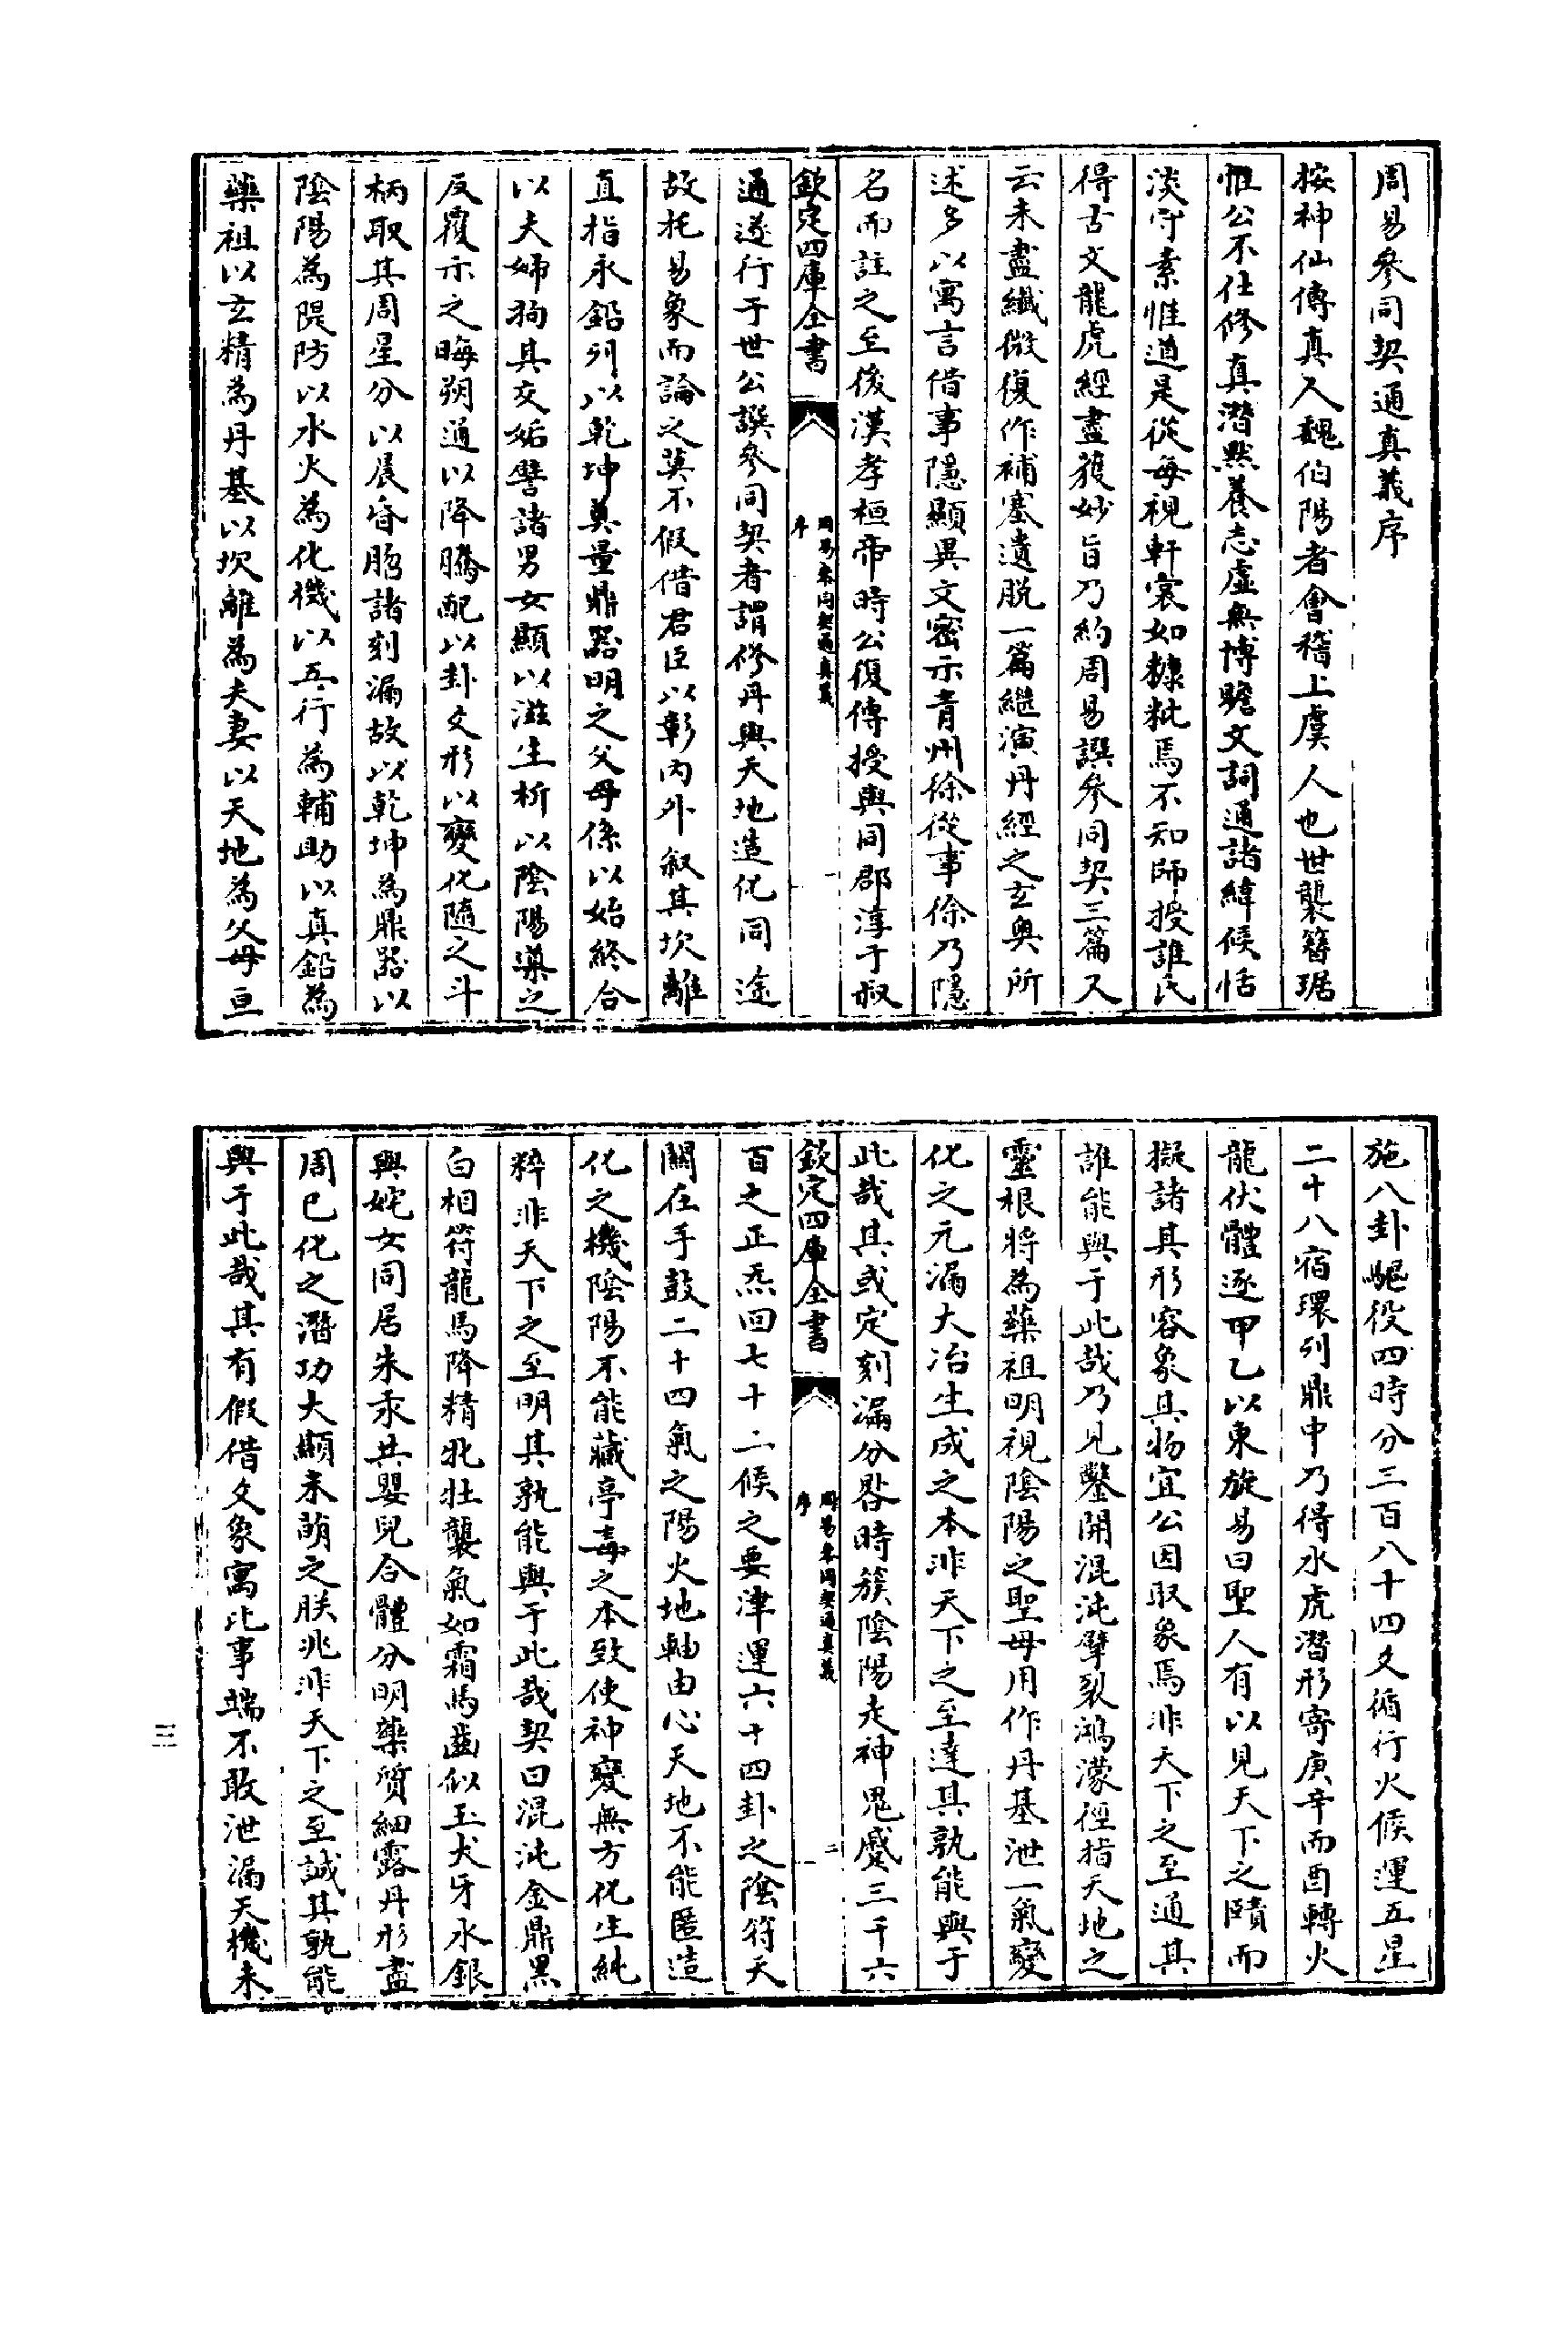 周易參同契通真義序
按神仙傳真人魏伯陽者會稽上虞人也世襲簪琚
惟公不仕修真潛黙養志虛無博贍文詞通諸緯候恬
淡守素惟道是從每視軒裳如糠粃焉不知師授誰氏
得古文龍虎經盡獲妙旨乃約周易譔參同契三篇又
云未盡纖微復作補塞遺脱一篇繼演丹經之玄奥所
述多以寓言借事隱顯異文密示青州徐從事徐乃隱
名而註之至後漢孝桓帝時公復傳授與同郡淳于叔
欽定四庫全書
周易參同契通真義
序
一
通遂行于世公譔參同契者謂修丹與天地造化同途
故托易象而論之莫不假借君臣以彰内外叙其坎離
直指汞鉛列以乾坤奠量鼎器明之父母係以始終合
以夫婦拘其交姤譬諸男女顯以滋生析以陰陽導之
反覆示之晦朔通以降騰配以卦爻形以變化隨之斗
柄取其周星分以晨昏昭諸刻漏故以乾坤為鼎器以
陰陽為隄防以水火為化機以五行為輔助以真鉛為
藥祖以玄精為丹基以坎離為夫妻以天地為父母互
施八卦驅役四時分三百八十四爻循行火候運五星
二十八宿環列鼎中乃得水虎潛形寄庚辛而酉轉火
龍伏體逐甲乙以東旋易曰聖人有以見天下之賾而
擬諸其形容象其物宜公因取象焉非天下之至通其
誰能與于此哉乃見鑿開混沌擘裂鴻濛徑指天地之
靈根將為藥祖明視陰陽之聖母用作丹基泄一氣變
化之元漏大冶生成之本非天下之至達其孰能與于
此哉其或定刻漏分晷時簇陰陽走神鬼蹙三千六
欽定四庫全書
周易參同契通真義
序
二
百之正炁回七十二候之要津運六十四卦之陰符天
關在手鼓二十四氣之陽火地軸由心天地不能匿造
化之機陰陽不能藏亭毒之本致使神變無方化生純
粹非天下之至明其孰能與于此哉契曰混沌金鼎黑
白相符龍馬降精牝牡襲氣如霜馬齒似玉犬牙水銀
與姹女同居朱汞共嬰兒合體分明藥質細露丹形盡
周已化之潛功大顯未萌之朕兆非天下之至誠其孰能
與于此哉其有假借爻象寓此事端不敢泄漏天機未
三